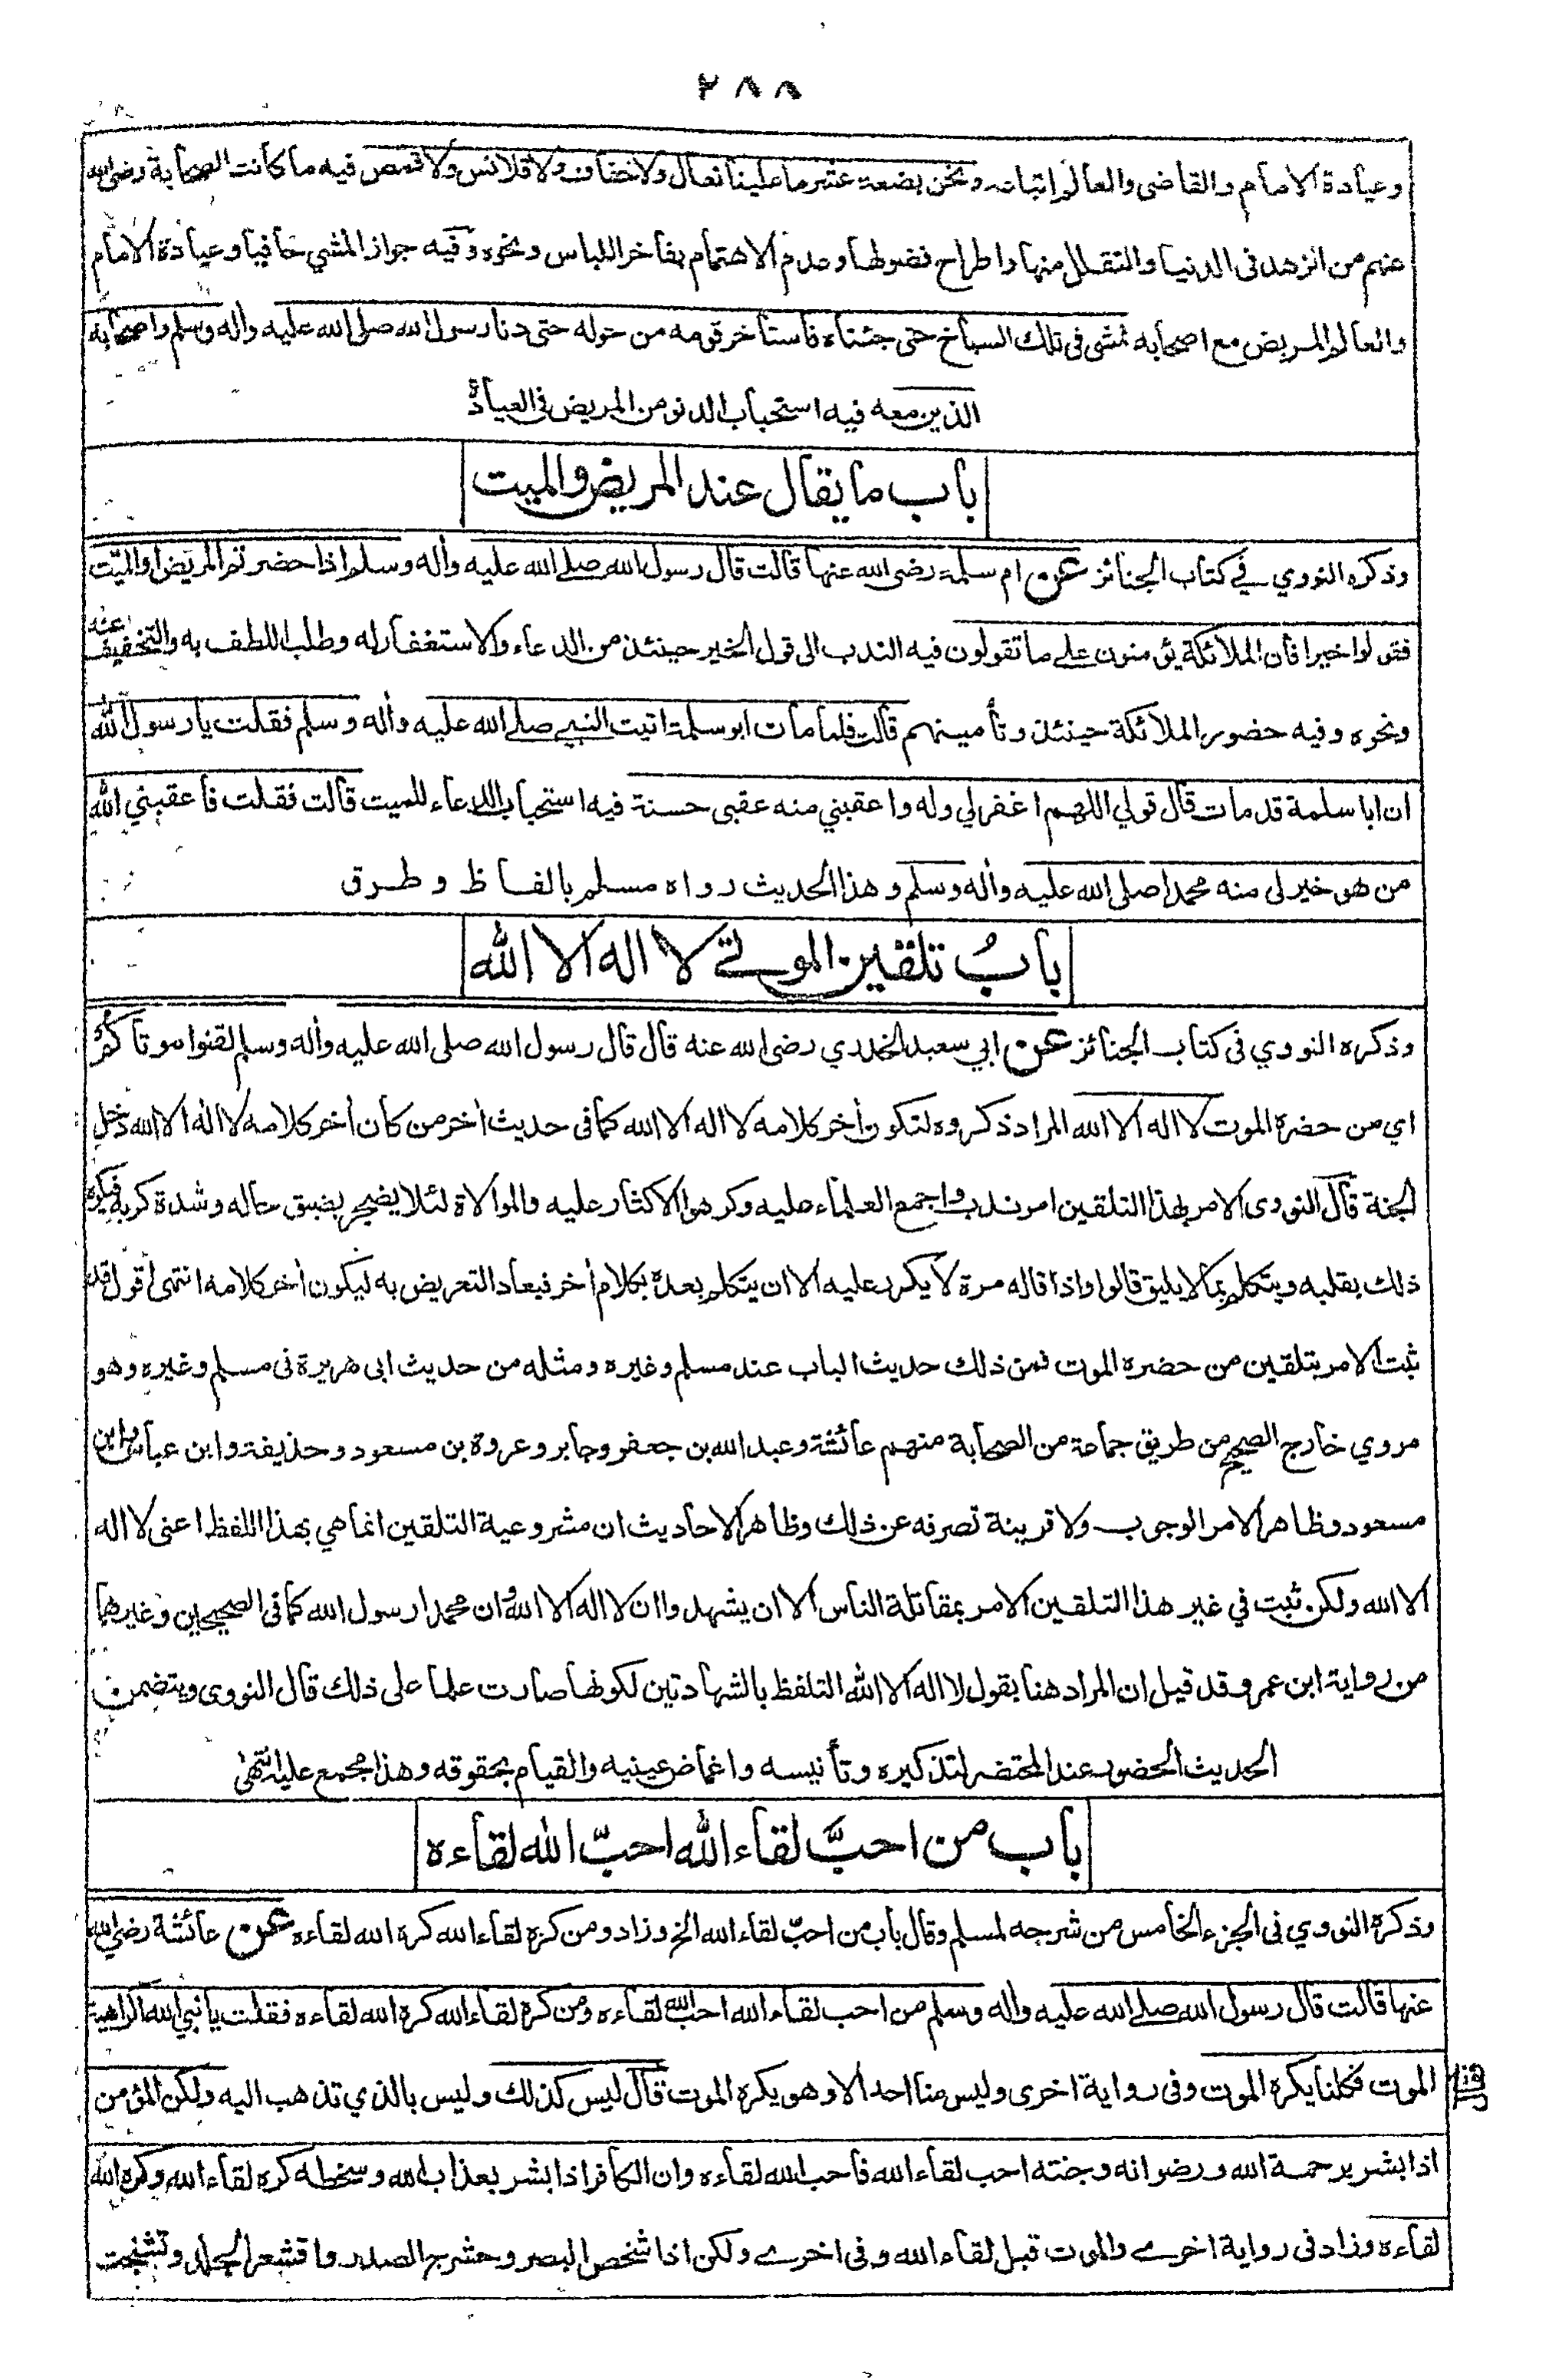 ٢٨٨
وعيادة الامام والقاضى والعالم اتباعه ونحن بضعة عشر ما علينا نعال ولا خفاف ولا قلانس ولا قمص فيه ما كانت الصحابة رضى الله
عنهم من الزهد فى الدنيا والتقلل منها واطراح فضولها وعدم الاهتمام بفاخر اللباس ونحوه وفيه جواز المشي حافيا وعيادة الامام
والعالم المريض مع اصحابه نمشى فى تلك السباخ حتى جئناه فاستأخر قومه من حوله حتى دنا رسول الله صلى الله عليه وأله وسلم واصحابه
الذين معه فيه استحباب الدنو من المريض فى العيادة
باب ما يقال عند المريض والميت
وذكره النووي في كتاب الجنائز عن ام سلمة رضى الله عنها قالت قال رسول الله صلے الله عليه وأله وسلم اذا حضرتم المريض او الميّت
فقولوا خيرا فأن الملائكة يؤمنون علے ما تقولون فيه الندب الى قول الخير حينئذ من الدعاء والاستغفار له وطلب اللطف به والتخفيف عنه
ونحوه وفيه حضور الملائكة حينئذ وتأمينهم قالت فلما مات ابو سلمة اتيت النبي صلے الله عليه وأله وسلم فقلت يا رسول الله
ان ابا سلمة قد مات قال قولي اللهم اغفر لي وله واعقبني منه عقبى حسنة فيه استحباب الدعاء للميت قالت فقلت فأعقبني الله
من هو خير لى منه محمدا صلى الله عليه وأله وسلم وهذا الحديث رواه مسلم بالفاظ وطرق
بابُ تلقين الموتے لا اله الا الله
وذكره النووي فى كتاب الجنائز عن ابي سعيد الخدري رضى الله عنه قال قال رسول الله صلى الله عليه وأله وسلم لقنوا موتاكم
اي من حضره الموت لا اله الا الله المراد ذكروه لتكون أخر كلامه لا اله الا الله كما فى حديث أخر من كان أخر كلامه لا اله الا الله دخل
الجنة قال النووى الامر بهذا التلقين امر ندب واجمع العلماء عليه وكرهوا الاكثار عليه والموالاة لئلا يضجر بضيق حاله وشدة كربه فيكره
ذلك بقلبه ويتكلم بما لا يليق قالوا واذا قاله مرة لا يكرر عليه الا ان يتكلم بعده بكلام أخر فيعاد التعريض به ليكون أخر كلامه انتهى أقول قد
ثبت الامر بتلقين من حضره الموت فمن ذلك حديث الباب عند مسلم وغيره ومثله من حديث ابى هريرة فى مسلم وغيره وهو
مروي خارج الصحيح من طريق جماعة من الصحابة منهم عائشة وعبد الله بن جعفر وجابر وعروة بن مسعود وحذيفة وابن عباس وابن
مسعود وظاهر الامر الوجوب ولا قرينة تصرفه عن ذلك وظاهر الاحاديث ان مشروعية التلقين انما هي بهذا اللفظ اعنى لا اله
الا الله ولكن ثبت في غير هذا التلقين الامر بمقاتلة الناس الا ان يشهدوا ان لا اله الا الله وان محمدا رسول الله كما فى الصحيحين وغيرهما
من رواية ابن عمر وقد قيل ان المراد هنا بقول لا اله الا الله التلفظ بالشهادتين لكونها صارت علما على ذلك قال النووى ويتضمن
الحديث الحضور عند المحتضر لتذكيره وتأنيسه واغماض عينيه والقيام بحقوقه وهذا مجمع عليه انتهى
باب من احبَّ لقاء الله احبّ الله لقاءه
وذكره النووي فى الجزء الخامس من شرحه لمسلم وقال باب من احبّ لقاء الله الخ وزاد ومن كره لقاء الله كره الله لقاءه عن عائشة رضي الله
عنها قالت قال رسول الله صلے الله عليه واله وسلم من احب لقاء الله احب الله لقاءه ومن كره لقاء الله كره الله لقاءه فقلت يا نبي الله أكراهية
الموت فكلنا يكره الموت وفى رواية اخرى وليس منا احد الا وهو يكره الموت قال ليس كذلك وليس بالذي تذهب اليه ولكن المؤمن
اذا بشر برحمة الله ورضوانه وجنته احب لقاء الله فاحب الله لقاءه وان الكافر اذا بشر بعذاب الله وسخطه كره لقاء الله وكره الله
لقاءه وزاد فى رواية اخرے والموت قبل لقاء الله وفى اخرے ولكن اذا شخص البصر وحشرج الصدر واقشعر الجلد وتشنجت